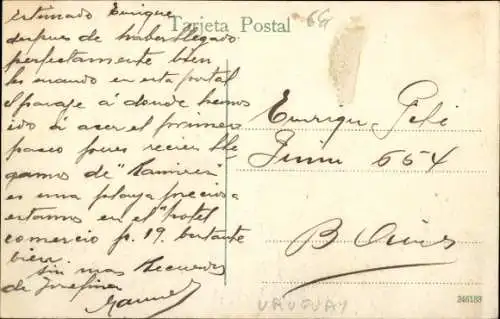 Tarjeta Postal
66
estimado Enrique
despues de haber llegado
perfectamente bien
les mando en esta postal
el paraje á donde hemos
ido á acer el primer
paseo pues recien lle
gamos de "Ramirez"
es una playa preciosa
estamos en el "hotel
comercio p. 19. bastante
bien.
sin mas Recuerdos
de Josefina
Enrique
654
B Aires
URUGUAY
246183